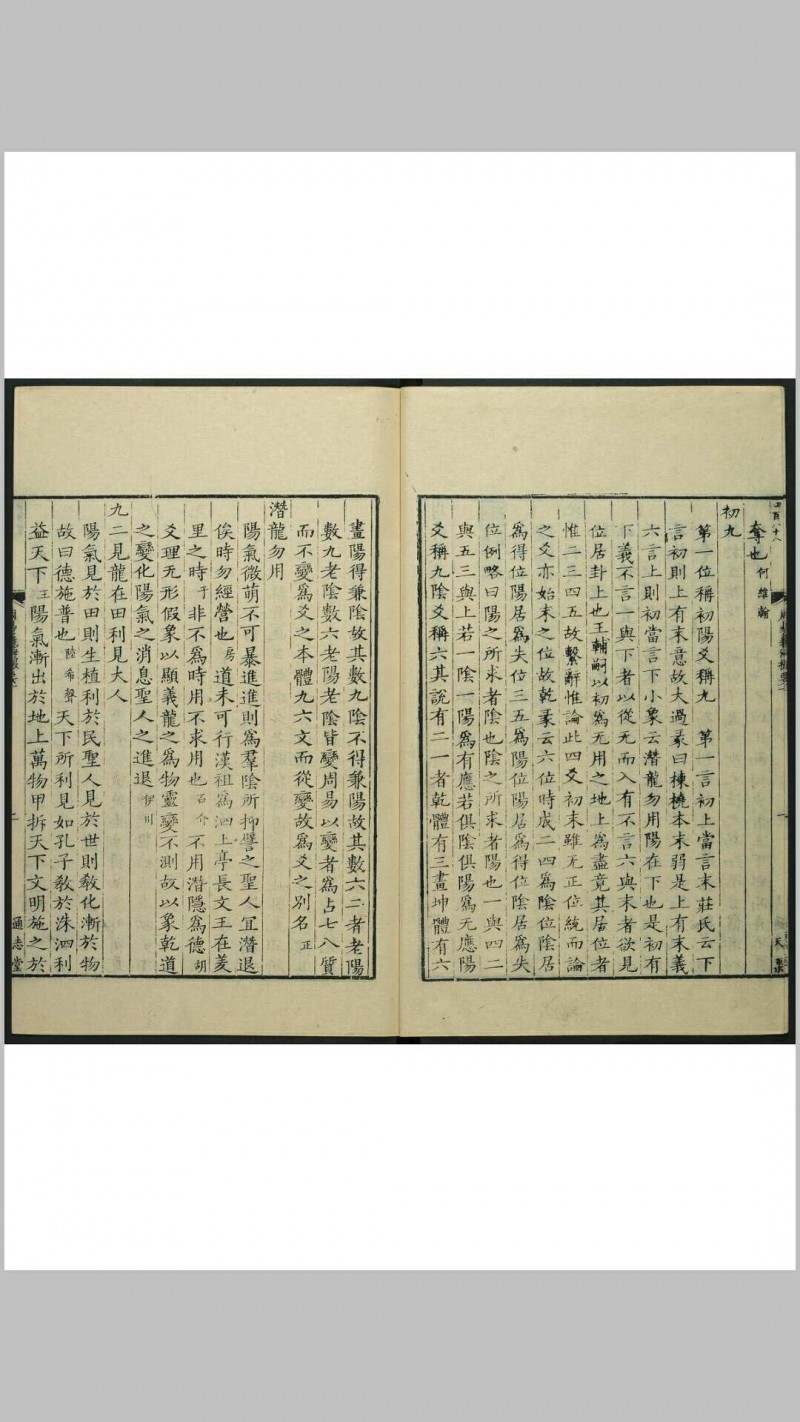 奪也何維翰
初九
第一位稱初陽爻稱九　第一言初上當言末莊氏云下
言初則上有末意故大過彖曰棟橈本末弱是上有末義
六言上則初當言下小象云潛龍勿用陽在下也是初有
下義不言一與下者以從无而入有不言六與末者欲見
位居卦上也王輔嗣以初爲无用之地上爲盡竟其居位者
惟二三四五故繫辭惟論此四爻初末雖无正位統而論
之爻亦始末之位故乾彖云六位時成二四爲陰位陰居
爲得位陽居爲失位三五爲陽位陽居爲得位陰居爲失
位例略曰陽之所求者陰也陰之所求者陽也一與四二
與五三與上若一陰一陽爲有應若俱陰俱陽爲无應陽
爻稱九陰爻稱六其說有二一者乾體有三畫坤體有六
畫陽得兼陰故其數九陰不得兼陽故其數六二者老陽
數九老陰數六老陽老陰皆變周易以變者爲占七八質
而不變爲爻之本體九六文而從變故爲爻之別名正
潛龍勿用
陽氣微萌不可暴進進則爲羣陰所抑讐之聖人宜潛退
俟時勿經營也房道未可行漢祖爲泗上亭長文王在羑
里之時于非不爲時用不求用也石介不用潛隱爲德胡
爻理无形假象以顯義龍之爲物靈變不測故以象乾道
之變化陽氣之消息聖人之進退伊川
九二見龍在田利見大人
陽氣見於田則生植利於民聖人見於世則敎化漸於物
故曰德施普也陸希聲天下所利見如孔子敎於洙泗利
益天下王陽氣漸出於地上萬物甲拆天下文明施之於
通志堂